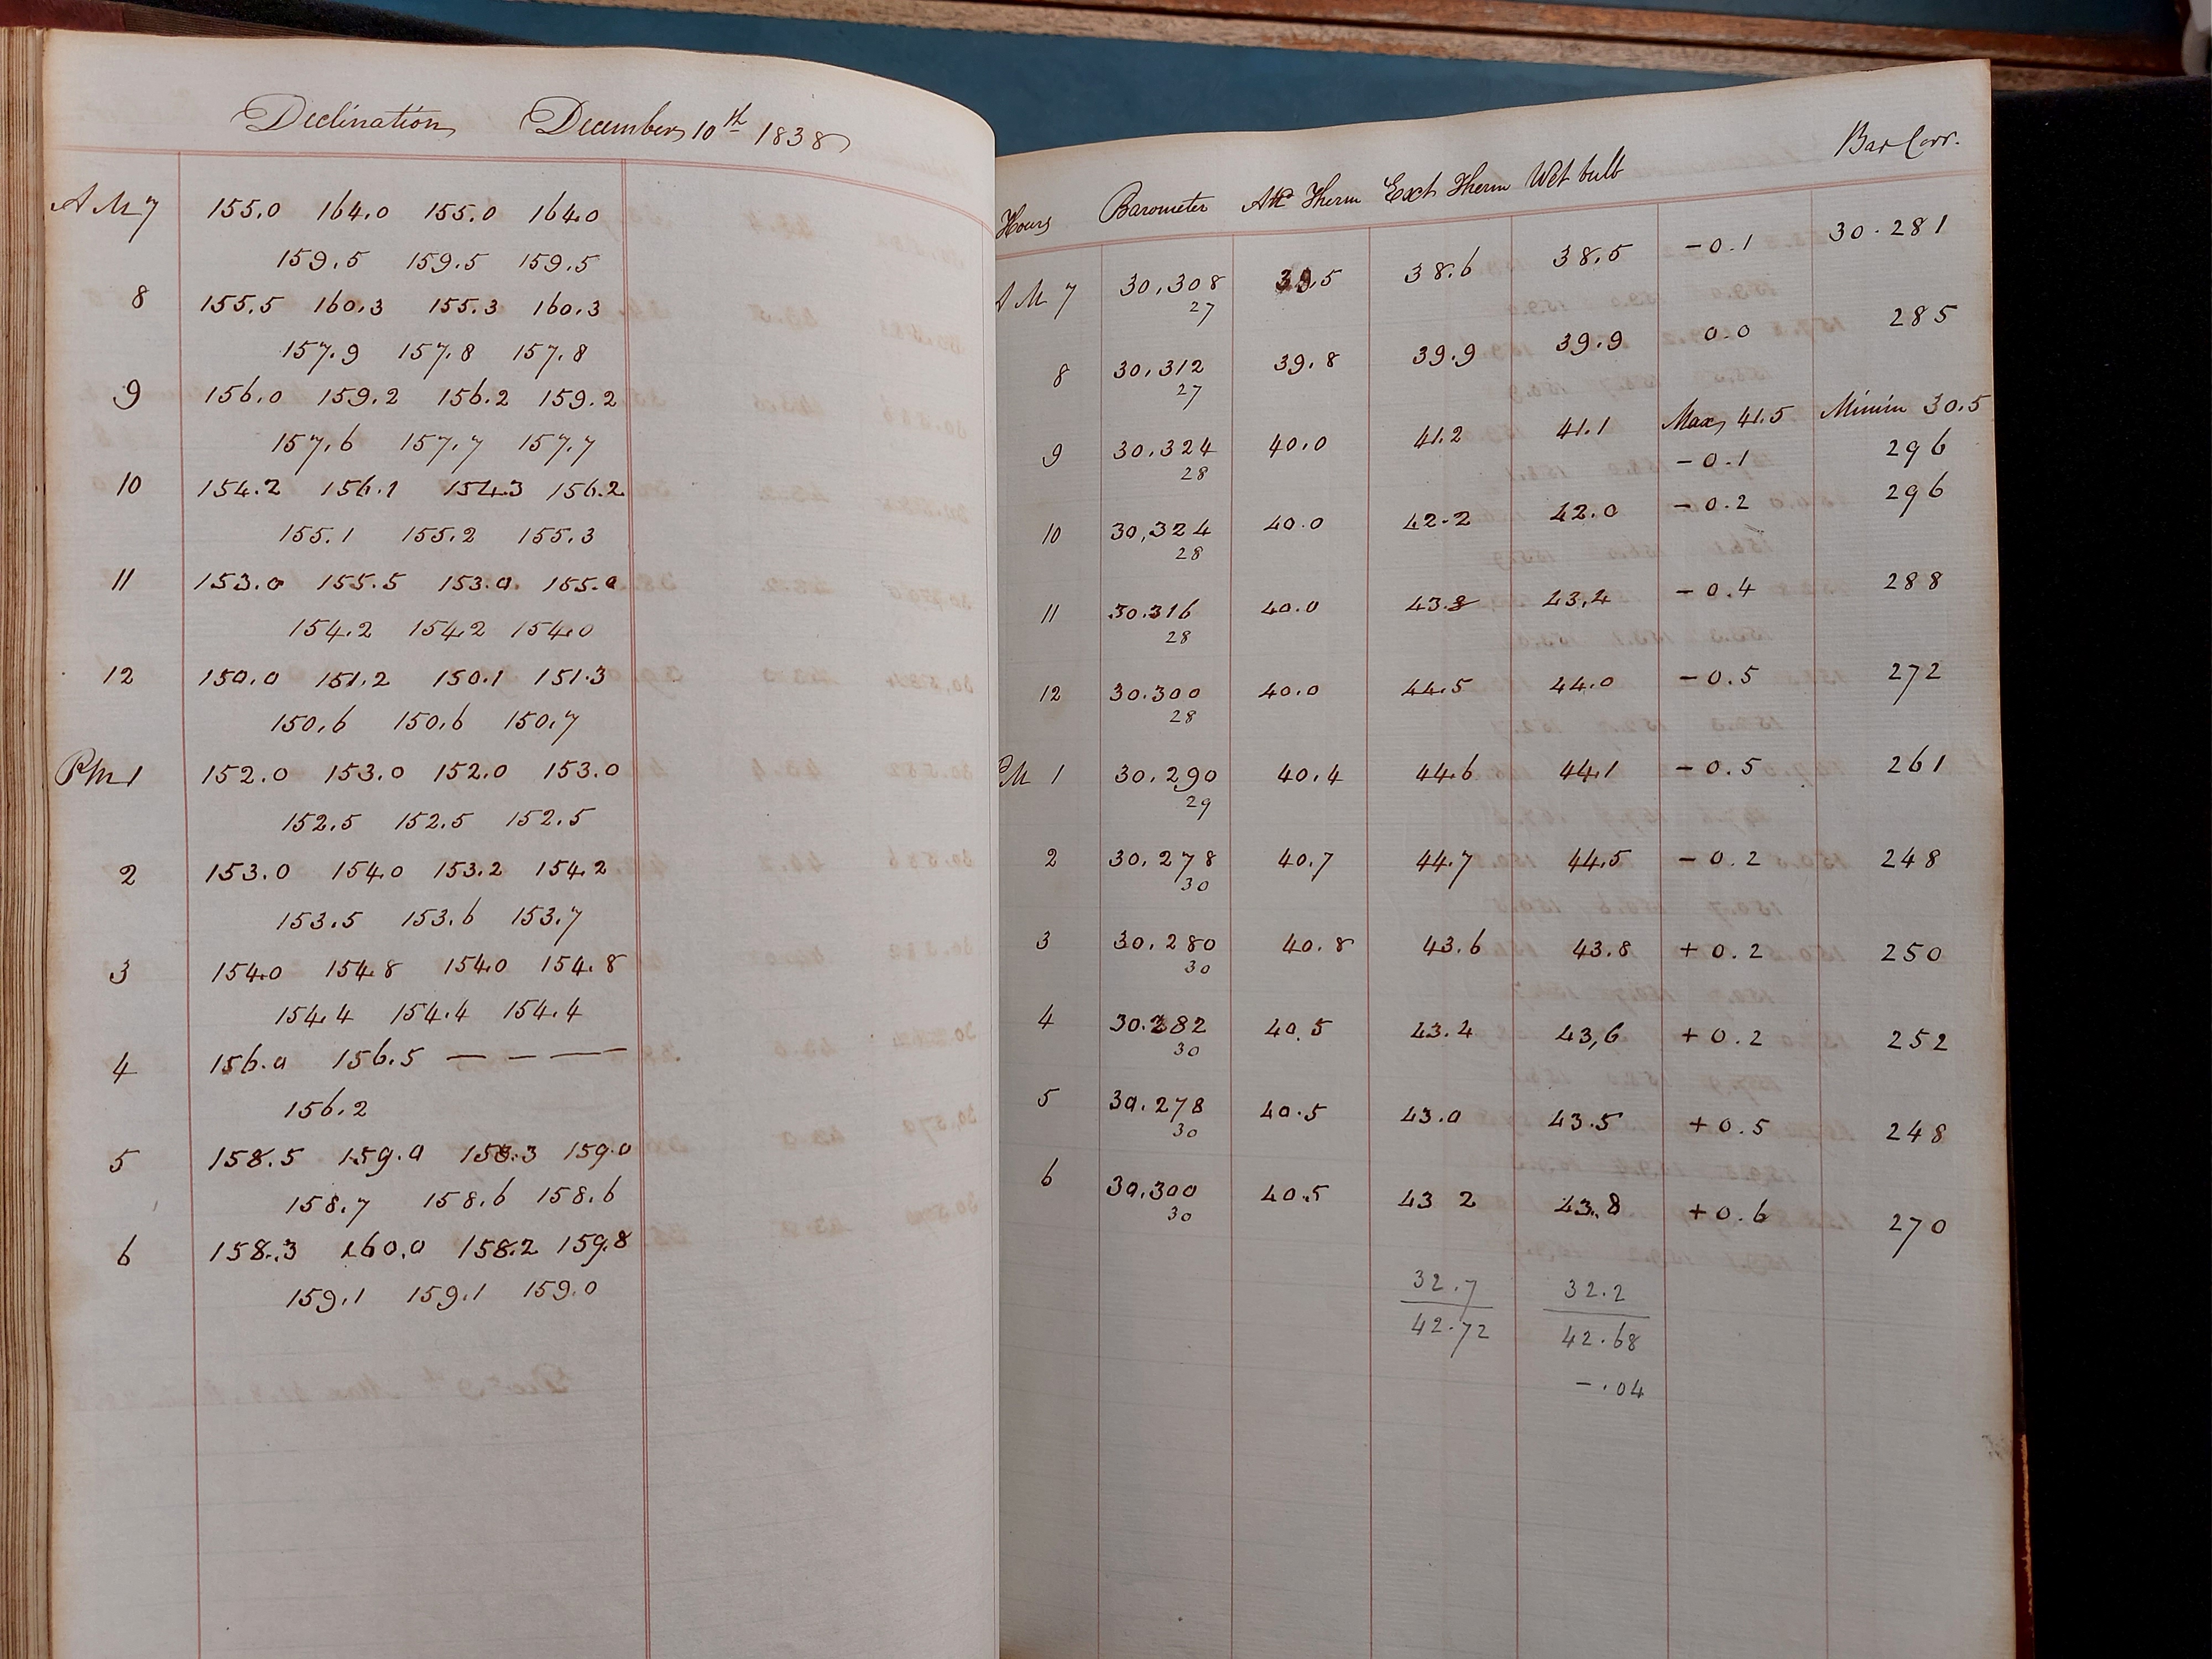 Declination December 10th 1838
AM 7 155.0 164.0 155.0 164.0
159.5 159.5 159.5
8 155.5 160.3 155.3 160.3
157.9 157.8 157.8
9 156.0 159.2 156.2 159.2
157.6 157.7 157.7
10 154.2 156.1 154.3 156.2
155.1 155.2 155.3
11 153.0 155.5 153.0 155.0
154.2 154.2 154.0
12 150.0 151.2 150.1 151.3
150.6 150.6 150.7
PM 1 152.0 153.0 152.0 153.0
152.5 152.5 152.5
2 153.0 154.0 153.2 154.2
153.5 153.6 153.7
3 154.0 154.8 154.0 154.8
154.4 154.4 154.4
4 156.0 156.5 — — —
156.2
5 158.5 159.0 158.3 159.0
158.7 158.6 158.6
6 158.3 160.0 158.2 159.8
159.1 159.1 159.0
Hours Barometer Att Therm Ext Therm Wet bulb Bar Corr.
AM 7 30,308 39.5 38.6 38.5 -0.1 30.281
27
8 30,312 39.8 39.9 39.9 0.0 285
27
Max 41.5 Minim 30.5
9 30.324 40.0 41.2 41.1 -0.1 296
28
10 30,324 40.0 42.2 42.0 -0.2 296
28
11 30.316 40.0 43.8 43.4 -0.4 288
28
12 30.300 40.0 44.5 44.0 -0.5 272
28
PM 1 30.290 40.4 44.6 44.1 -0.5 261
29
2 30.278 40.7 44.7 44.5 -0.2 248
30
3 30.280 40.8 43.6 43.8 +0.2 250
30
4 30.282 40.5 43.4 43,6 +0.2 252
30
5 30.278 40.5 43.0 43.5 +0.5 248
30
6 30,300 40.5 43 2 43.8 +0.6 270
30
32.7 32.2
42.72 42.68
-.04